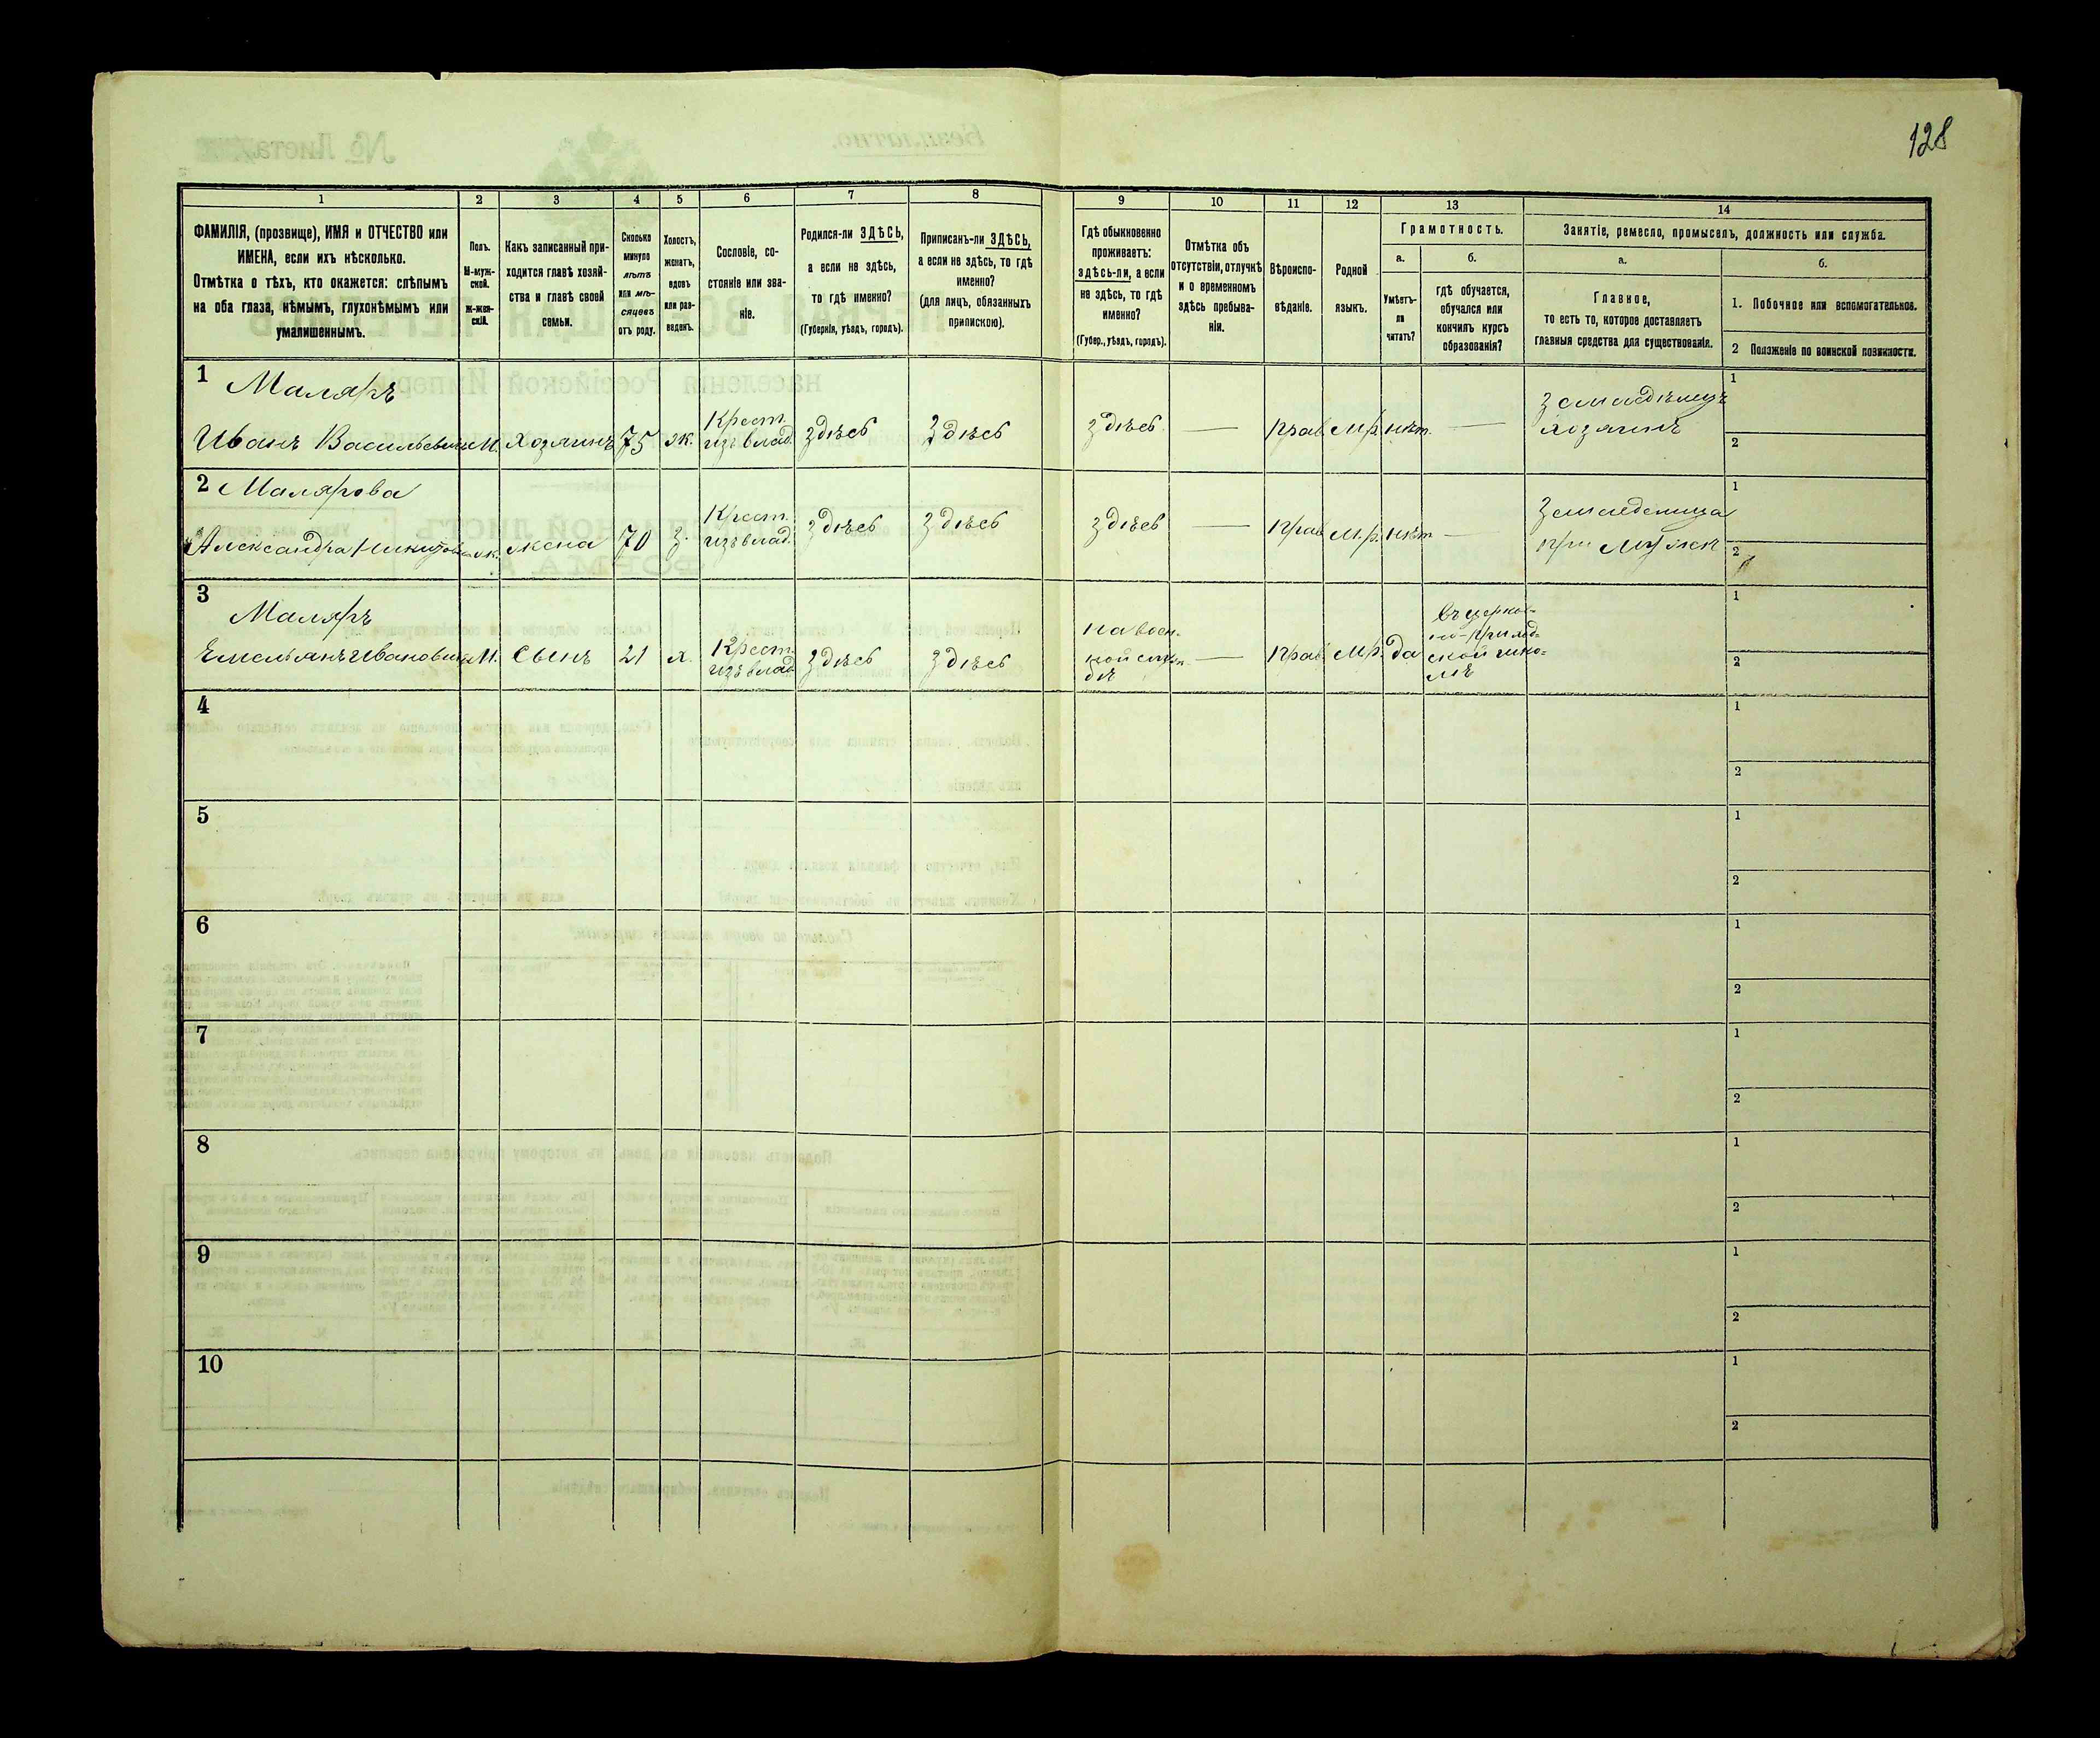 128
1
2
3
4
5
6
7
8
9
10
11
12
13
14
ФАМИЛІЯ, (прозвище), ИМЯ и ОТЧЕСТВО или
ИМЕНА, если ихъ нѣсколько.
Отмѣтка о тѣхъ, кто окажется: слѣпымъ
на оба глаза, нѣмымъ, глухонѣмымъ или
умалишеннымъ.
Полъ.
М-муж-
ской.
Ж-жен-
скій.
Какъ записанный при-
ходится главѣ хозяй-
ства и главѣ своей
семьи.
Сколько
минуло
лѣтъ
или мѣ-
сяцевъ
отъ роду.
Холостъ,
женатъ,
вдовъ
или раз-
веденъ.
Сословіе, со-
стояніе или зва-
ніе.
Родился-ли ЗДѢСЬ,
а если не здѣсь,
то гдѣ именно?
(Губернія, уѣздъ, городъ).
Приписанъ-ли ЗДѢСЬ,
а если не здѣсь, то гдѣ
именно?
(для лицъ, обязанныхъ
припискою).
Гдѣ обыкновенно
проживаетъ:
здѣсь-ли, а если
не здѣсь, то гдѣ
именно?
(Губер., уѣздъ, городъ).
Отмѣтка объ
отсутствіи, отлучкѣ
и о временномъ
здѣсь пребыва-
ніи.
Вѣроиспо-
вѣданіе.
Родной
языкъ.
Грамотность.
а.
Умѣетъ-
ли
читать?
б.
гдѣ обучается,
обучался или
кончилъ курсъ
образованія?
Занятіе, ремесло, промыселъ, должность или служба.
а.
Главное,
то есть то, которое доставляетъ
главныя средства для существованія.
б.
1. Побочное или вспомогательное.
2 Положеніе по воинской повинности.
1 Маляръ
Иванъ Васильевичъ
М.
Хозяинъ
75
ж.
Крест.
изъ влад.
здѣсь
здѣсь
здѣсь
—
прав.
М.р.
нѣт.
—
земледѣлецъ
хозяинъ
1
2
2 Малярова
Александра Никитова
ж.
жена
70
з.
Крест.
изъ влад.
здѣсь
здѣсь
здѣсь
—
прав.
М.р.
нѣт
—
земледелица
при мужѣ
1
2
3
Маляръ
Емельянъ Ивановичъ
М.
сынъ
21
х.
Крест.
изъ влад.
здѣсь
здѣсь
на воен-
ной служ-
бѣ
—
прав.
М.р.
да
въ церков-
но-приход-
ской шко-
лѣ
1
2
4
1
2
5
1
2
6
1
2
7
1
2
8
1
2
9
1
2
10
1
2